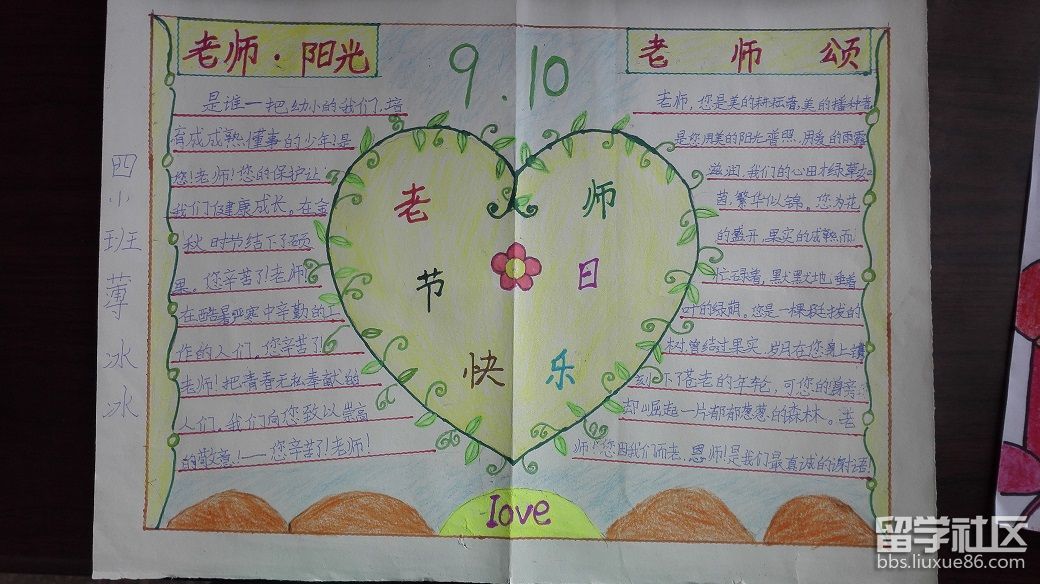 老师·阳光
是谁一把幼小的我们,培
育成成熟懂事的少年!是
您!老师!您的保护让
我们健康成长。在金
秋时节结下了硕
果。您辛苦了!老师!
在酷暑严寒中辛勤的工
作的人们。您辛苦了!
老师!把青春无私奉献给
人们。我们向您致以崇高
的敬意!——您辛苦了!老师!
9.10
老师
节日
快乐
love
老师颂
老师,您是美的耕耘者,美的播种者
是您用美的阳光普照,用爱的雨露
滋润,我们的心田才绿草如
茵,繁华似锦。您为花
的盛开,果实的成熟而
忙碌着,默默地垂着
叶的绿荫。您是一棵挺拔的
树曾结过果实,岁月在您身上镌
刻下了苍老的年轮,可您的身旁
却崛起一片郁郁葱葱的森林。老
师!您因我们而老,恩师!是我们最真诚的谢语!
四小班薄冰冰
留学社区
bbs.liuxue86.com